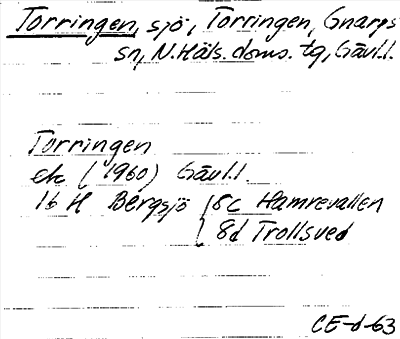 Torringen, sjö, Torringen, Gnarps
sn, N. Häls. doms. tg, Gävl.l.
Torringen
ek (1960) Gävl.l.
16 H Bergsjö 8c Hamrevallen
8d Trollsved
CE-d-63